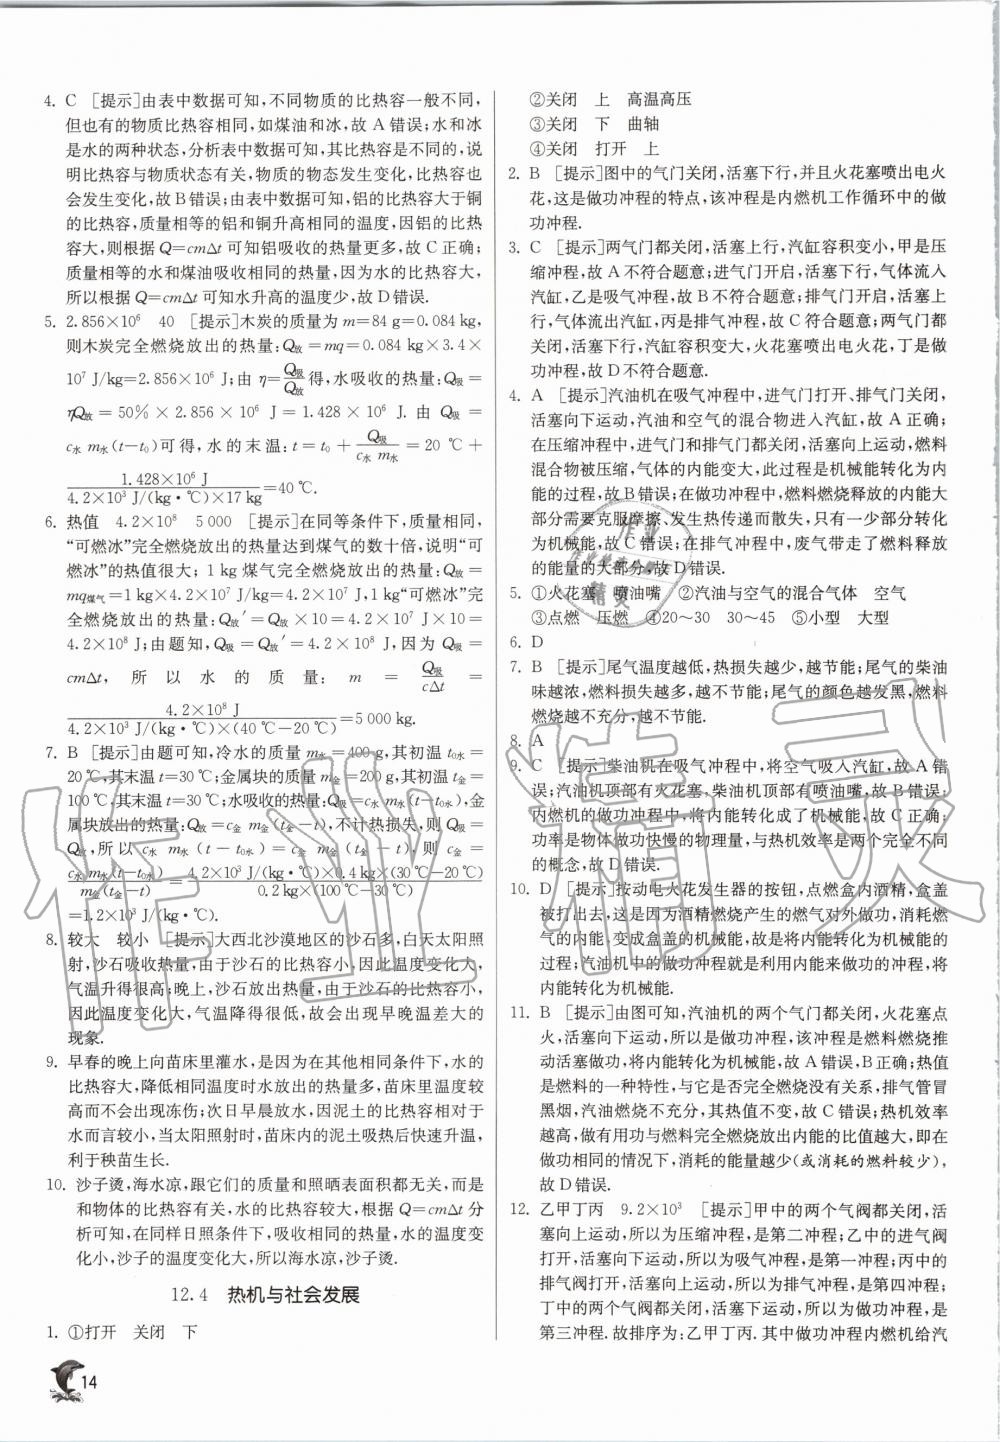 4. C [提示]由表中数据可知,不同物质的比热容一般不同,
但也有的物质比热容相同,如煤油和冰,故 A 错误;水和冰
是水的两种状态,分析表中数据可知,其比热容是不同的,说
明比热容与物质状态有关,物质的物态发生变化,比热容也
会发生变化,故 B 错误;由表中数据可知,铝的比热容大于铜
的比热容,质量相等的铝和铜升高相同的温度,因铝的比热
容大,则根据 Q=cmΔt 可知铝吸收的热量更多,故 C 正确;
质量相等的水和煤油吸收相同的热量,因为水的比热容大,
所以根据 Q=cmΔt 可知水升高的温度少,故 D 错误.
5. 2.856×10⁶ 40 [提示]木炭的质量为 m=84 g=0.084 kg,
则木炭完全燃烧放出的热量:Q放=mq=0.084 kg×3.4×
10⁷ J/kg=2.856×10⁶ J;由 η=Q吸/Q放得,水吸收的热量:Q吸=
ηQ放=50%×2.856×10⁶ J=1.428×10⁶ J. 由 Q吸=
c水 m水(t-t₀)可得,水的末温:t=t₀+Q吸/(c水 m水)=20 ℃+
1.428×10⁶ J/(4.2×10³ J/(kg·℃)×17 kg)=40 ℃.
6. 热值 4.2×10⁸ 5 000 [提示]在同等条件下,质量相同,
“可燃冰”完全燃烧放出的热量达到煤气的数十倍,说明“可
燃冰”的热值很大;1 kg 煤气完全燃烧放出的热量:Q放=
mq煤气=1 kg×4.2×10⁷ J/kg=4.2×10⁷ J,1kg“可燃冰”完
全燃烧放出的热量:Q放′=Q放×10=4.2×10⁷ J×10=
4.2×10⁸ J;由题知,Q吸=Q放′=4.2×10⁸ J,因为 Q吸=
cmΔt,所以水的质量:m=Q吸/(cΔt)=
4.2×10⁸ J/(4.2×10³ J/(kg·℃)×(40 ℃-20 ℃))=5 000 kg.
7. B [提示]由题可知,冷水的质量 m水=400 g,其初温 t₀水=
20 ℃,其末温 t=30 ℃;金属块的质量 m金=200 g,其初温 t金=
100 ℃,其末温 t=30 ℃;水吸收的热量:Q吸=c水 m水(t-t₀水),金
属块放出的热量:Q放=c金 m金(t金-t),不计热损失,则 Q吸=
Q放,所以 c水 m水(t-t₀水)=c金 m金(t金-t),则 c金=
c水 m水(t-t₀水)/(m金(t金-t))=4.2×10³ J/(kg·℃)×0.4 kg×(30 ℃-20 ℃)/(0.2 kg×(100 ℃-30 ℃))
=1.2×10³ J/(kg·℃).
8. 较大 较小 [提示]大西北沙漠地区的沙石多,白天太阳照
射,沙石吸收热量,由于沙石的比热容小,因此温度变化大,
气温升得很高;晚上,沙石放出热量,由于沙石的比热容小,
因此温度变化大,气温降得很低,故会出现早晚温差大的
现象.
9. 早春的晚上向苗床里灌水,是因为在其他相同条件下,水的
比热容大,降低相同温度时水放出的热量多,苗床的温度较
高而不会出现冻伤;次日早晨放水,因泥土的比热容相对于
水而言较小,当太阳照射时,苗床内的泥土吸热后快速升温,
利于秧苗生长.
10. 沙子烫,海水凉,跟它们的质量和照晒表面积都无关,而是
和物体的比热容有关,水的比热容较大,根据 Q=cmΔt 分
析可知,在同样日照条件下,吸收相同的热量,海水的温度变
化小,沙子的温度变化大,所以海水凉,沙子烫.
12.4 热机与社会发展
1. ①打开 关闭 下
②关闭 上 高温高压
③关闭 下 曲轴
④关闭 打开 上
2. B [提示]图中的气门关闭,活塞下行,并且火花塞喷出电火
花,这是做功冲程的特点,该冲程是内燃机工作循环中的做
功冲程.
3. C [提示]两气门都关闭,活塞上行,汽缸容积变小,甲是压
缩冲程,故 A 不符合题意;进气门开启,活塞下行,气体流入
汽缸,乙是吸气冲程,故 B 不符合题意;排气门开启,活塞上
行,气体流出汽缸,丙是排气冲程,故 C 符合题意;两气门都
关闭,活塞下行,汽缸容积变大,火花塞喷出电火花,丁是做
功冲程,故 D 不符合题意.
4. A [提示]汽油机在吸气冲程中,进气门打开、排气门关闭,
活塞向下运动,汽油和空气的混合物进入汽缸,故 A 正确;
在压缩冲程中,进气门和排气门都关闭,活塞向上运动,燃料
混合物被压缩,气体的内能变大,此过程是机械能转化为内
能的过程,故 B 错误;在做功冲程中,燃料燃烧释放的内能大
部分需要克服摩擦、发生热传递而散失,只有一少部分转化
为机械能,故 C 错误;在排气冲程中,废气带走了燃料释放
的能量的大部分,故 D 错误.
5. ①火花塞 喷油嘴 ②汽油与空气的混合气体 空气
③点燃 压燃 ④20～30 30～45 ⑤小型 大型
6. D
7. B [提示]尾气温度越低,热损失越少,越节能;尾气的柴油
味越浓,燃料损失越多,越不节能;尾气的颜色越发黑,燃料
燃烧越不充分,越不节能.
8. A
9. C [提示]柴油机在吸气冲程中,将空气吸入汽缸,故 A 错
误;汽油机顶部有火花塞,柴油机顶部有喷油嘴,故 B 错误;
内燃机的做功冲程中,将内能转化成了机械能,故 C 正确;
功率是物体做功快慢的物理量,与热机效率是两个完全不同
的概念,故 D 错误.
10. D [提示]按动电火花发生器的按钮,点燃盒内酒精,盒盖
被打出去,这是因为酒精燃烧产生的燃气对外做功,消耗燃
气的内能,变成盒盖的机械能,故是内能转化为机械能的过
程;汽油机中的做功冲程就是利用内能来做功的冲程,将
内能转化为机械能.
11. B [提示]由图可知,汽油机的两个气门都关闭,火花塞点
火,活塞向下运动,所以是做功冲程,该冲程是燃料燃烧推
动活塞做功,将内能转化为机械能,故 A 错误,B 正确;热值
是燃料的一种特性,与它是否完全燃烧没有关系,排气管冒
黑烟,汽油燃烧不充分,其热值不变,故 C 错误;热机效率
越高,做有用功与燃料完全燃烧放出内能的比值越大,即在
做功相同的情况下,消耗的能量越少(或消耗的燃料较少),
故 D 错误.
12. 乙甲丁丙 9.2×10³ [提示]甲中的两个气阀都关闭,活
塞向上运动,所以为压缩冲程,是第二冲程;乙中的进气阀
打开,活塞向下运动,所以为吸气冲程,是第一冲程;丙中的
排气阀打开,活塞向上运动,所以为排气冲程,是第四冲程;
丁中的两个气阀都关闭,活塞向下运动,所以为做功冲程,是
第三冲程. 故排序为:乙甲丁丙. 其中做功冲程内燃机给汽
14
作业精灵